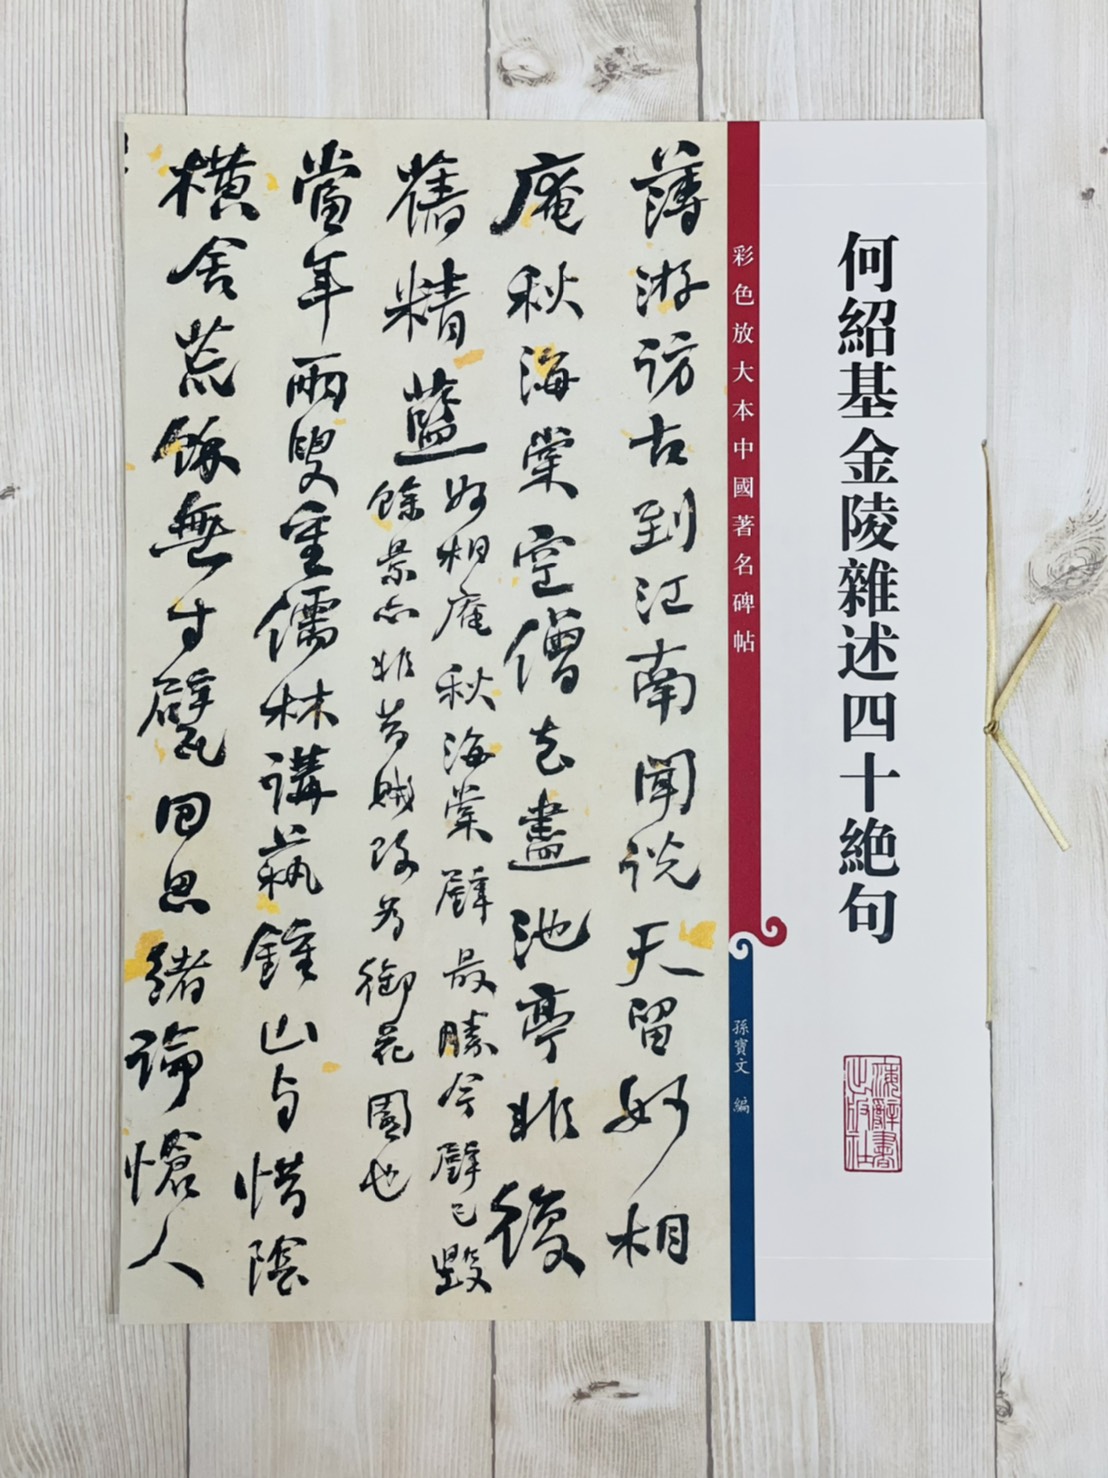 何紹基金陵雜述四十絶句
彩色放大本中國著名碑帖
孫寶文 編
海辭書出版社
薄游訪古到江南聞説天留妙相
庵秋海棠空僧去盡池亭非復
舊精藍
妙相庵秋海棠壁最勝今壁已毀
餘景亦非昔賊改為御花園也
當年兩叟重儒林講蓺鍾山与惜陰
橫舍荒餘無寸甓回思緒論愴人